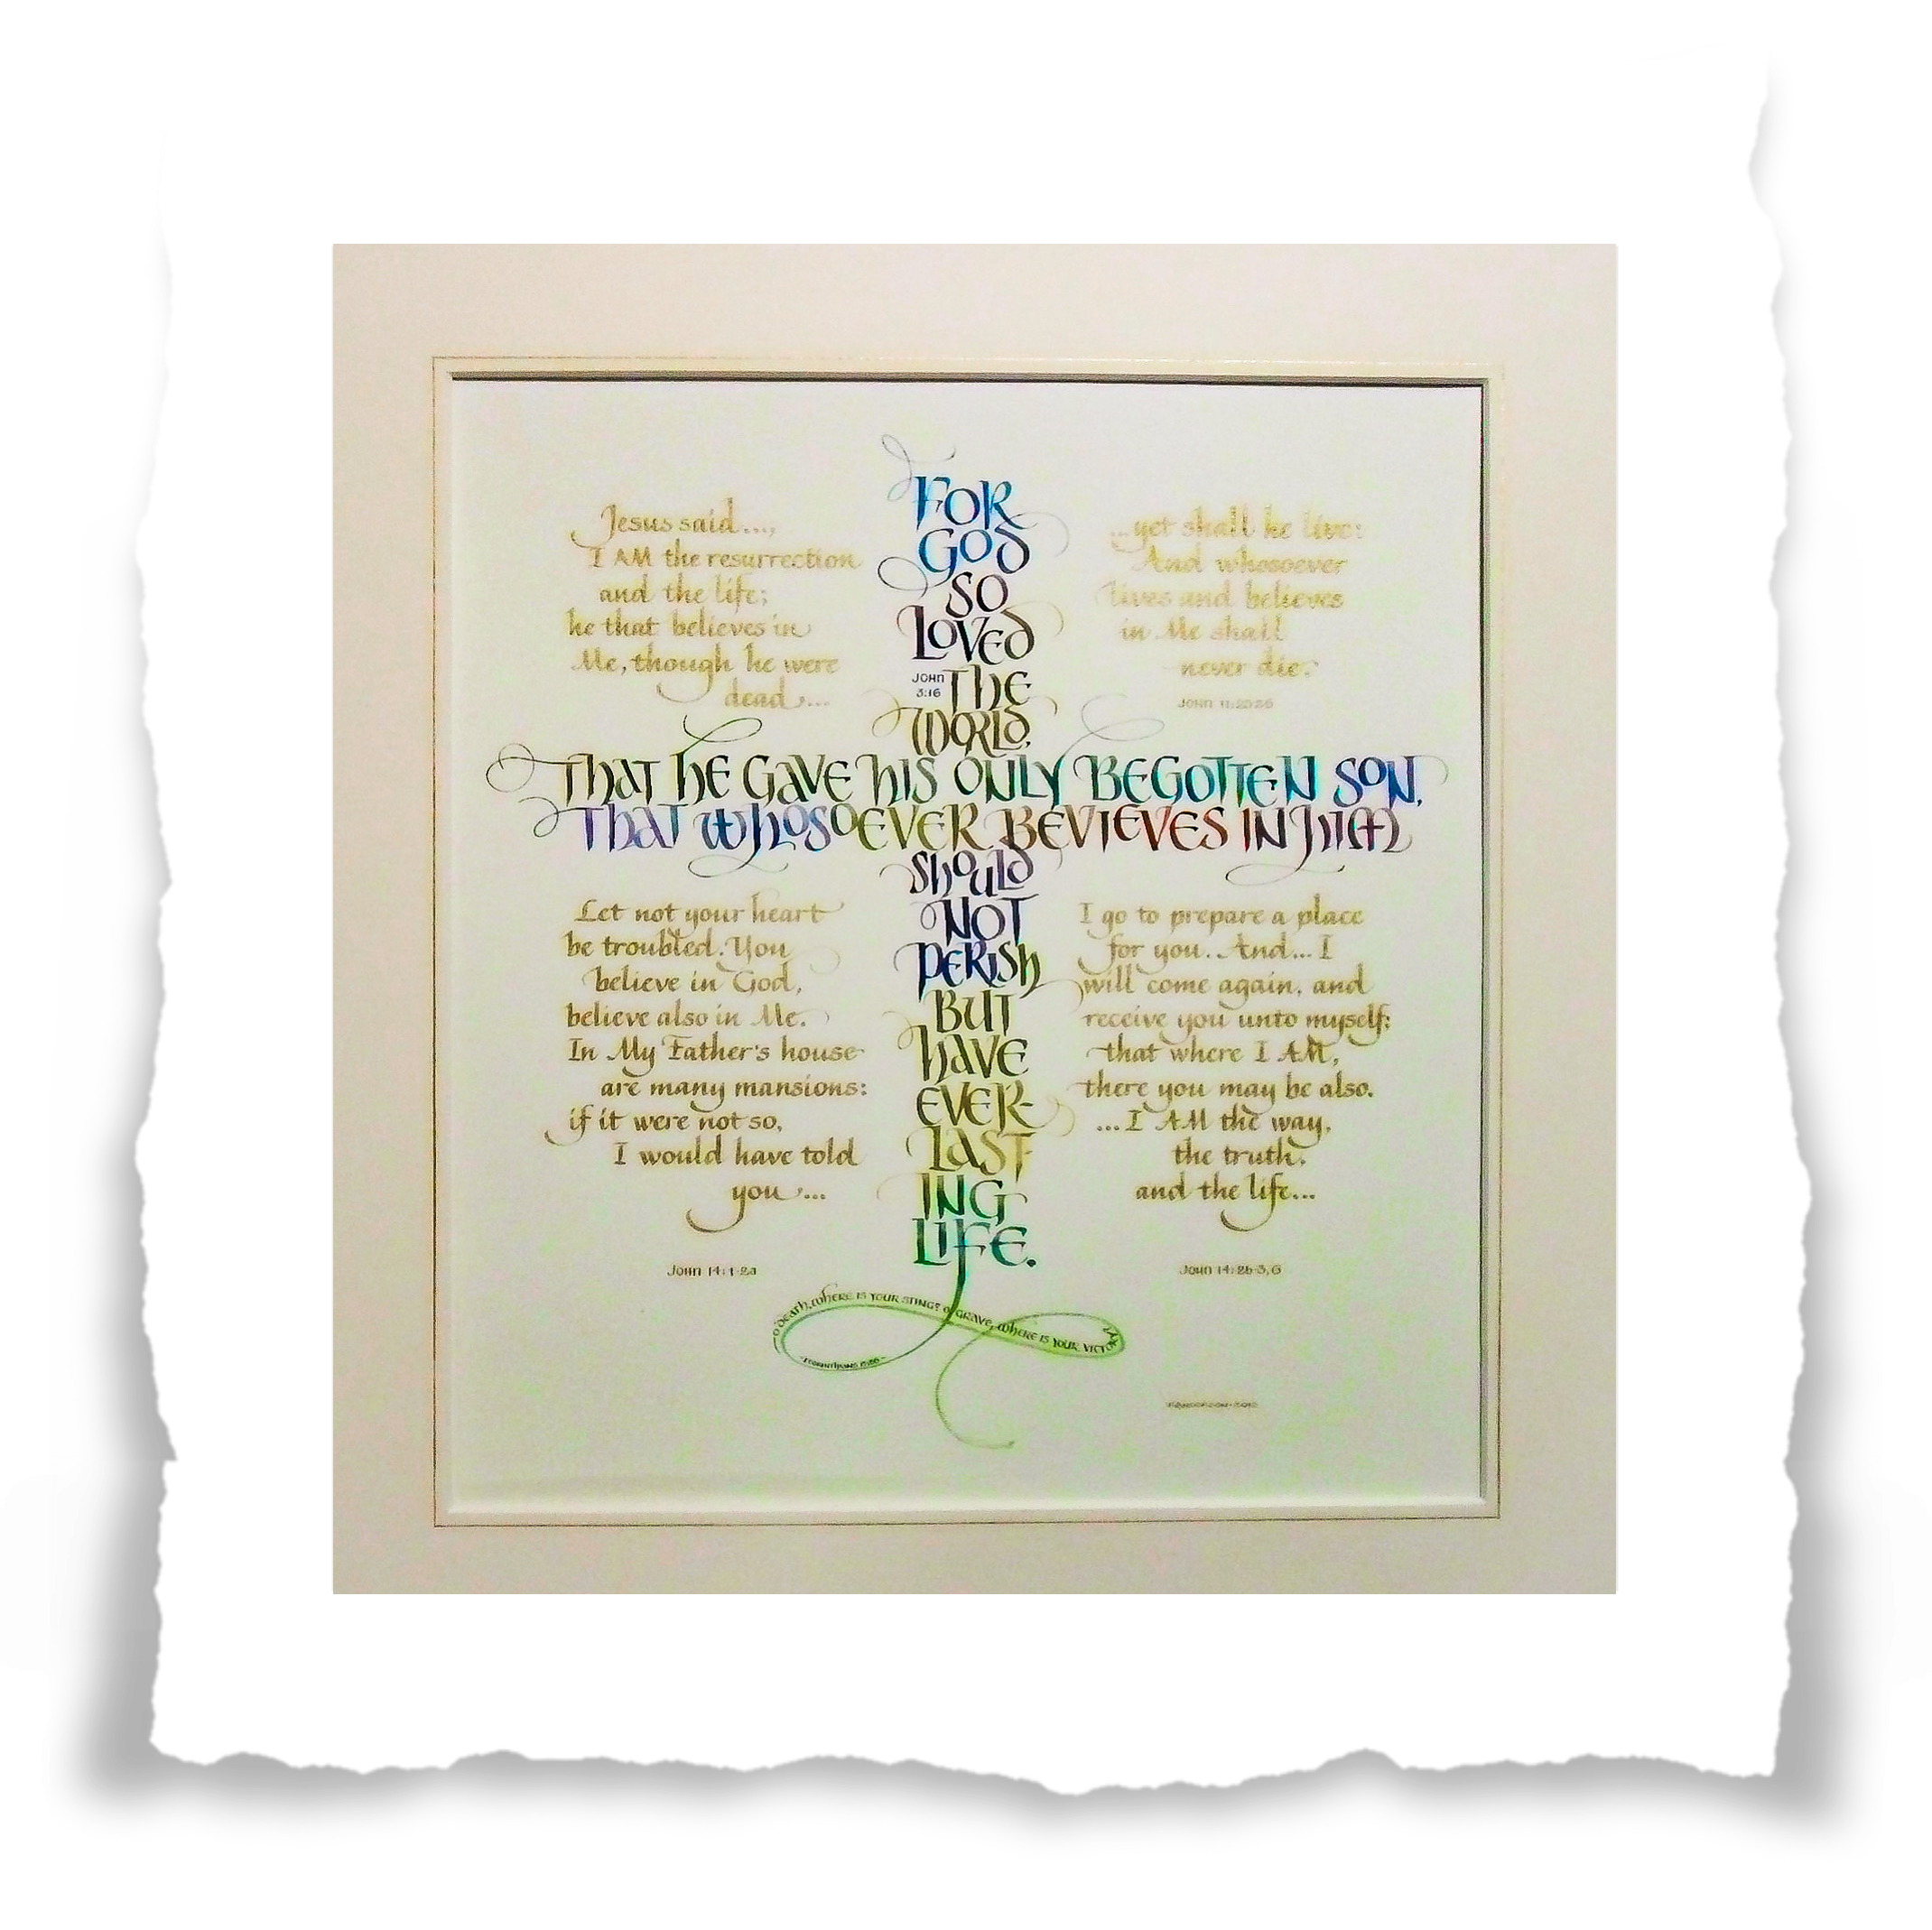 Jesus said...,
I AM the resurrection
and the life;
he that believes in
Me, though he were
dead...
...yet shall he live:
And whosoever
lives and believes
in Me shall
never die.
FOR
GOD
SO
LOVED
JOHN
3:16
THE
WORLD,
THAT HE GAVE HIS ONLY BEGOTTEN SON,
THAT WHOSOEVER BEVIEVES IN HIM
SHOULD
NOT
PERISH
BUT
HAVE
EVER-
LAST-
ING
LIFE.
Let not your heart
be troubled. You
believe in God,
believe also in Me.
In My Father's house
are many mansions:
if it were not so,
I would have told
you...
John 14:1-2a
I go to prepare a place
for you. And... I
will come again, and
receive you unto myself;
that where I AM,
there you may be also.
...I AM the way,
the truth,
and the life...
John 14:2b-3,6
O DEATH, WHERE IS YOUR STING? O GRAVE, WHERE IS YOUR VICTORY